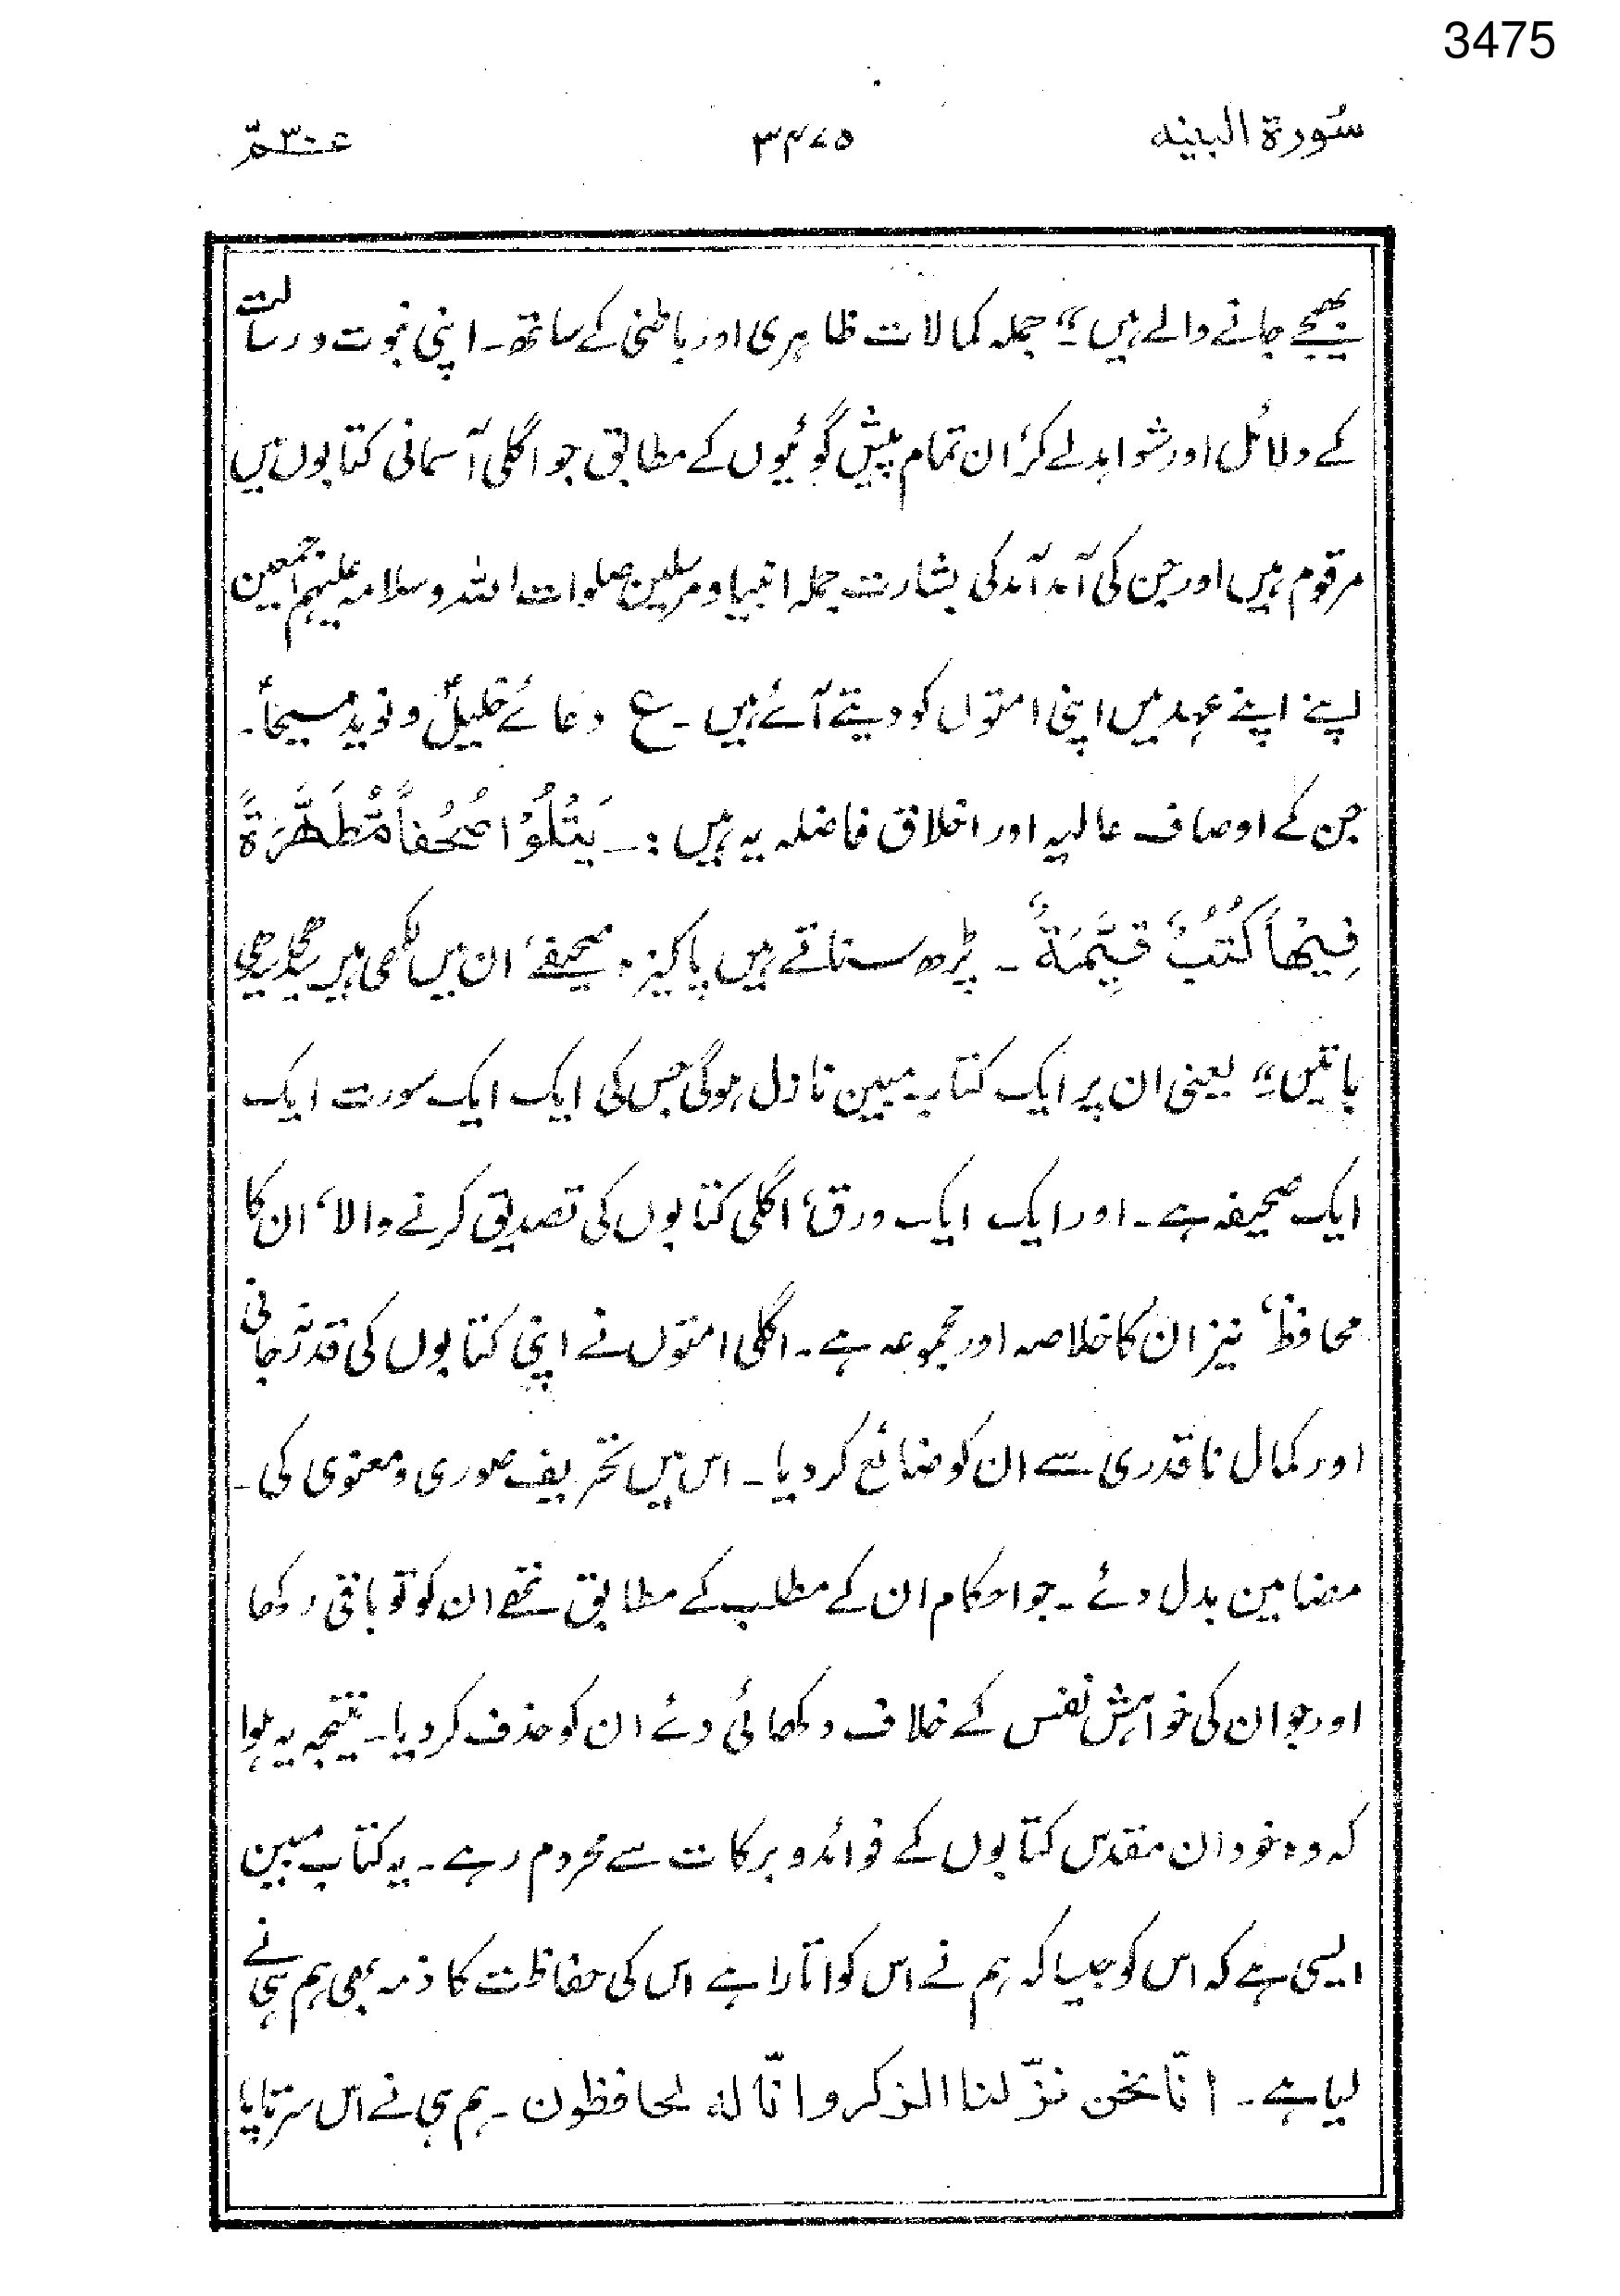 3475
سُورة البینہ
۳۴۷۵
عمّ ۳۰
بھیجے جانے والے ہیں“ جملہ کمالات ظاہری اور باطنی کے ساتھ۔ اپنی نبوت و رسالت
کے دلائل اور شواہد لے کر، ان تمام پیش گوئیوں کے مطابق جو اگلی آسمانی کتابوں میں
مرقوم ہیں اور جن کی آمد آمد کی بشارت جملہ انبیا و مرسلین صلوات اللہ وسلامہ علیہم اجمعین
اپنے اپنے عہد میں اپنی امتوں کو دیتے آئے ہیں۔ ع دعائے خلیلؑ و نوید مسیحاؑ۔
جن کے اوصاف عالیہ اور اخلاق فاضلہ یہ ہیں :۔ یَتْلُوْا صُحُفاً مُّطَهَّرَةً
فِیْهَا کُتُبٌ قَیِّمَةٌ ۔ پڑھ سناتے ہیں پاکیزہ صحیفے، ان میں لکھی ہیں سچی سیدھی
باتیں“ یعنی ان پر ایک کتاب مبین نازل ہوگی جس کی ایک ایک سورت ایک
ایک صحیفہ ہے۔ اور ایک ایک ورق، اگلی کتابوں کی تصدیق کرنے والا، ان کا
محافظ، نیز ان کا خلاصہ اور مجموعہ ہے۔ اگلی امتوں نے اپنی کتابوں کی قدر نہ جانی
اور کمال ناقدری سے ان کو ضائع کر دیا۔ اس میں تحریف صوری و معنوی کی۔
مضامین بدل دئے۔ جو احکام ان کے مطلب کے مطابق تھے ان کو تو باقی رکھا
اور جو ان کی خواہش نفس کے خلاف دکھائی دئے ان کو حذف کر دیا۔ نتیجہ یہ ہوا
کہ وہ خود ان مقدس کتابوں کے فوائد و برکات سے محروم رہے۔ یہ کتاب مبین
ایسی ہے کہ اس کو جیسا کہ ہم نے اس کو اتارا ہے اس کی حفاظت کا ذمہ بھی ہم ہی نے
لیا ہے۔ انّا نحن نزّلنا الذکر وانّا لہ لحافظون۔ ہم ہی نے اس سرتاپا